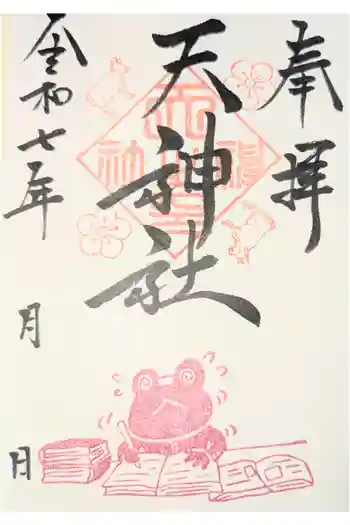 奉拝
天神社
令和七年
月
日